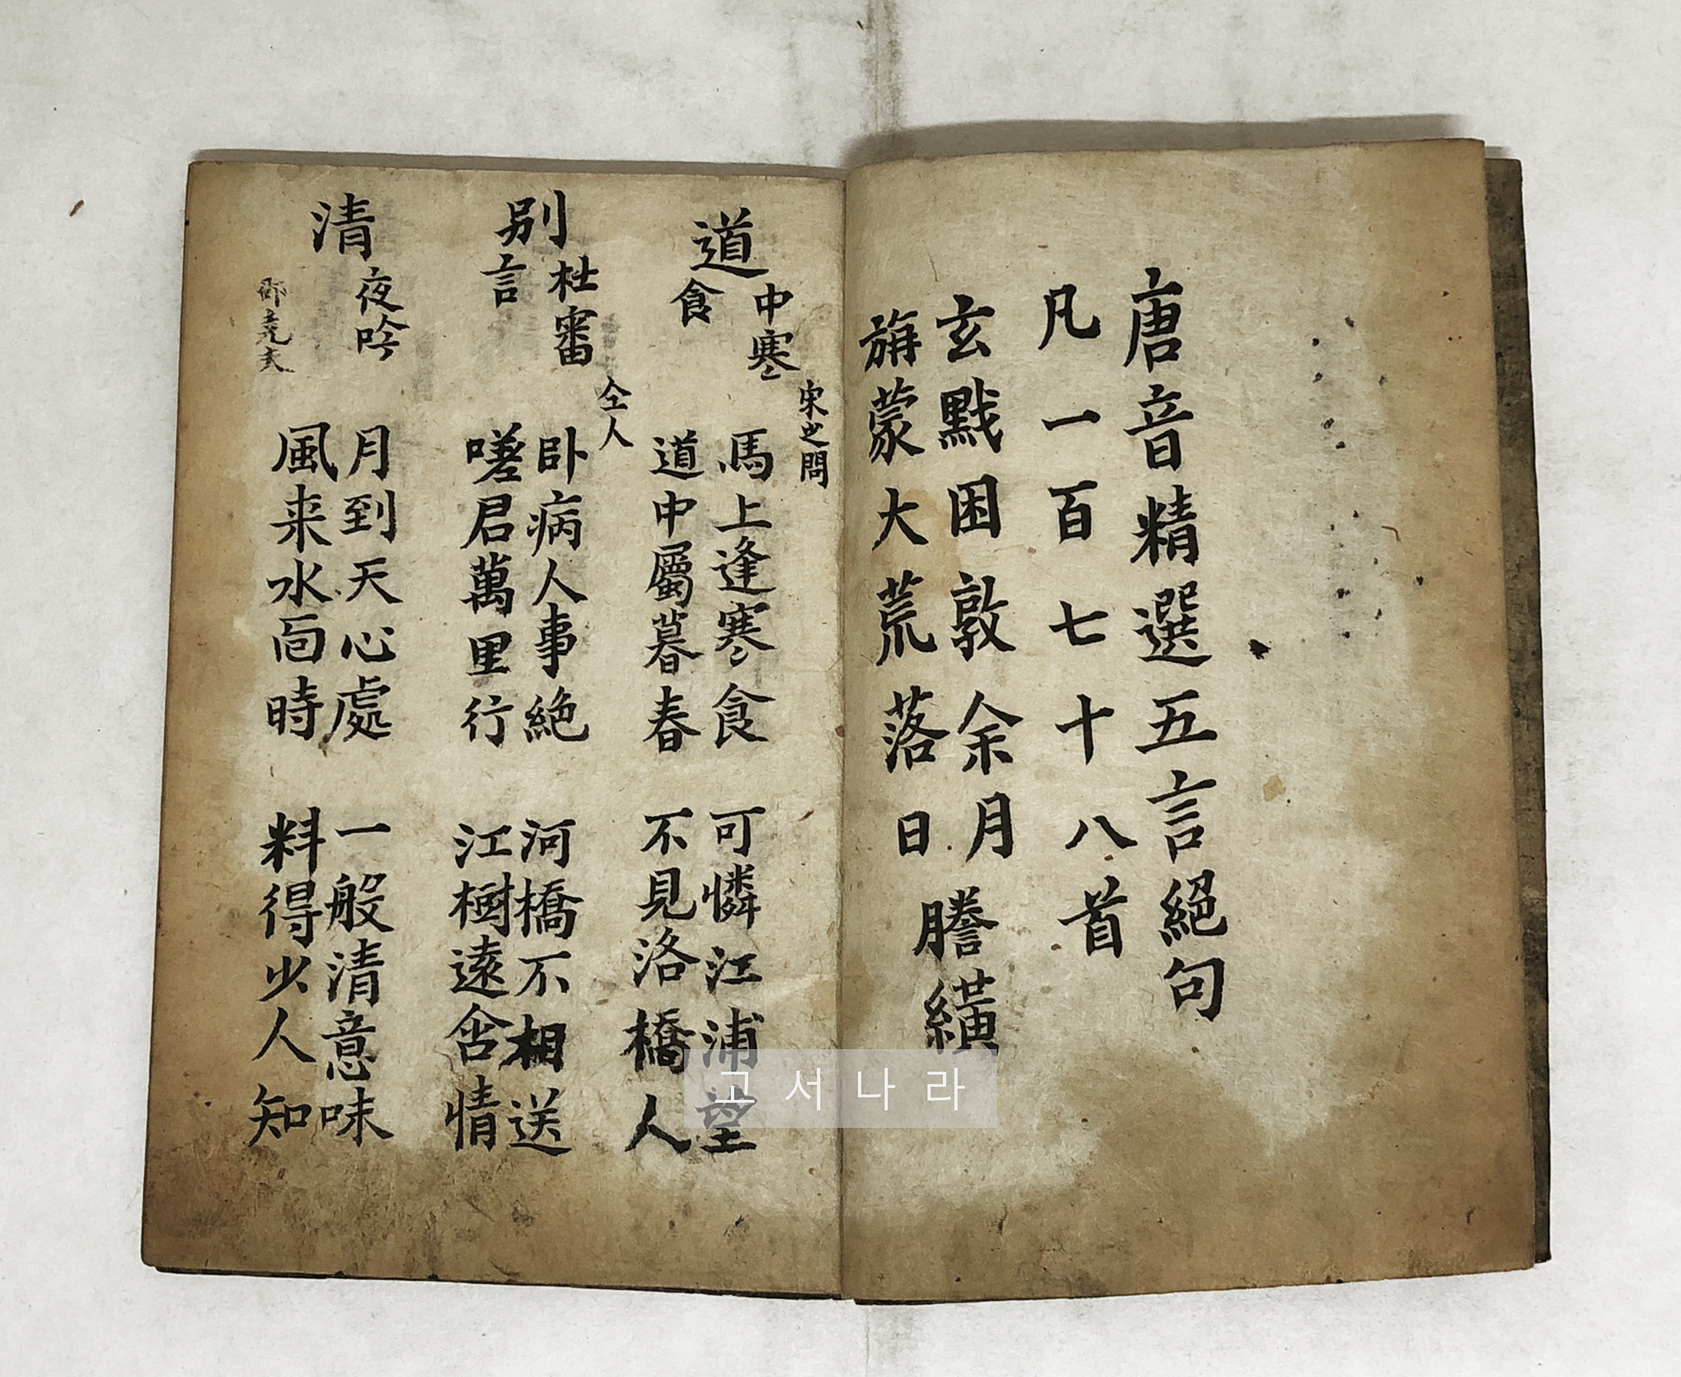 唐音精選五言絕句
凡一百七十八首
玄黓困敦余月
旃蒙大荒落日
謄
道中寒食
宋之問
馬上逢寒食
道中屬暮春
可憐江浦望
不見洛橋人
別杜審言
仝人
卧病人事絶
嗟君萬里行
河橋不相送
江樹遠含情
清夜吟
邵堯夫
月到天心處
風来水面時
一般清意味
料得少人知
고서나라